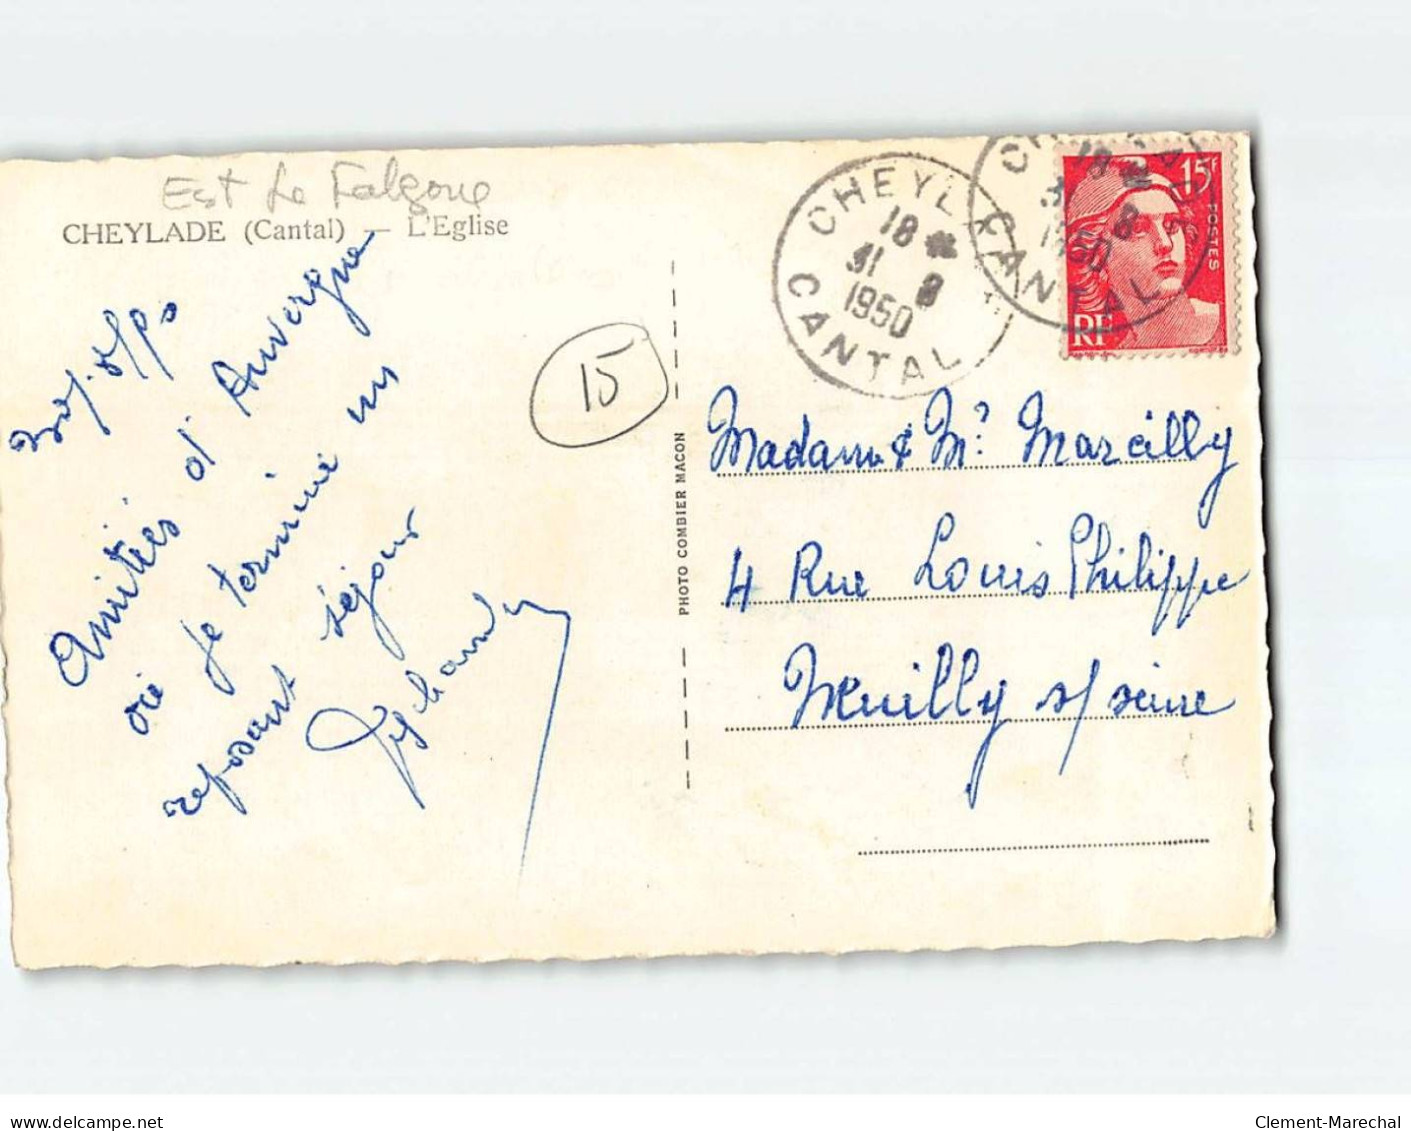 Est Le Falgoux
CHEYLADE (Cantal) — L'Eglise
Amitiés d'Auvergne
où je termine un
reposant séjour
15
PHOTO COMBIER MACON
CHEYL
18
31 8
1950
CANTAL
18
8
1950
CANTAL
15F
POSTES
RF
Madame & Mr Marcilly
4 Rue Louis Philippe
Neuilly s/ seine
delcampe.net
Clement-Marechal